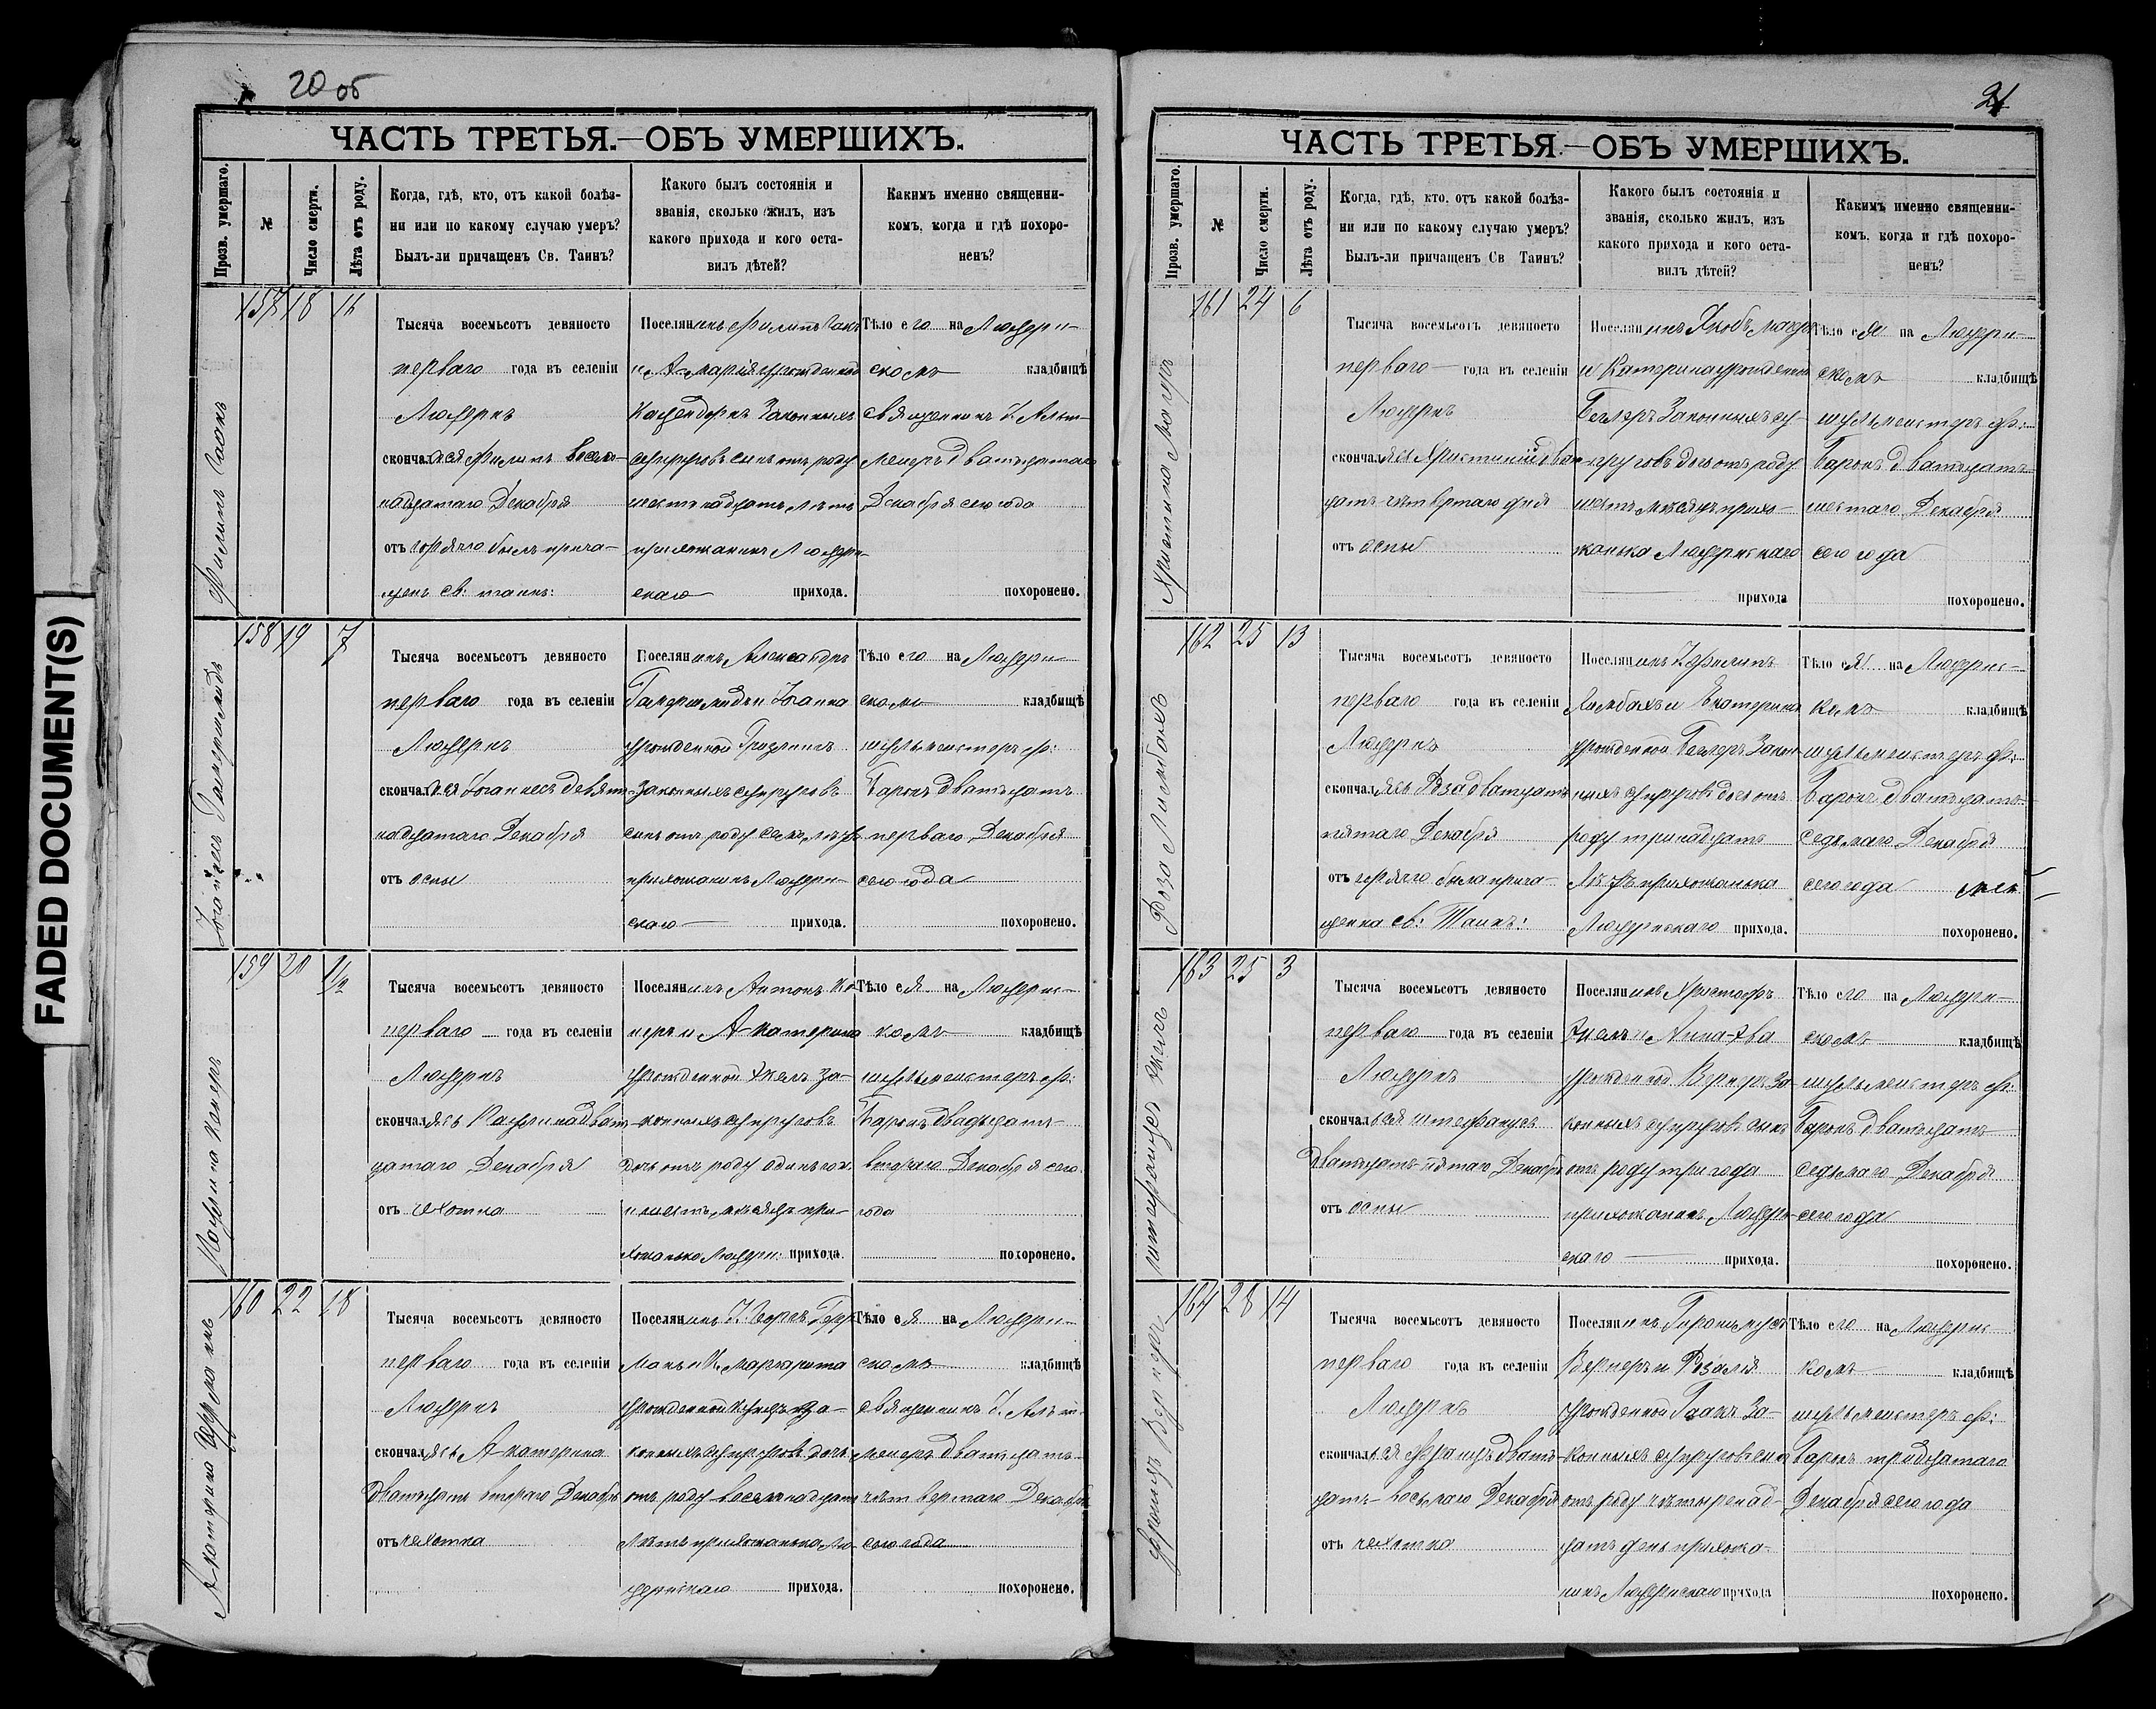 20 об
ЧАСТЬ ТРЕТЬЯ.—ОБЪ УМЕРШИХЪ.
Прозв. умершаго.
№
Число смерти.
Лѣта отъ роду.
Когда, гдѣ, кто, отъ какой болѣз-
ни или по какому случаю умеръ?
Былъ-ли причащенъ Св. Таинъ?
Какого былъ состоянія и
званія, сколько жилъ, изъ
какого прихода и кого оста-
вилъ дѣтей?
Какимъ именно священни-
комъ, когда и гдѣ похоро-
ненъ?
Филипъ
157 18 16
Тысяча восемьсотъ девяносто
перваго года въ селеніи
Люцернъ
скончался Филипъ восем-
надцатаго Декабря
отъ горячго былъ прича-
щенъ св: таинъ:
Поселянинъ Филипъ
и А-Марія урожденной
законныхъ
супруговъ сынъ отъ роду
шестнадцать лѣтъ
прихожанинъ Люцерн-
скаго прихода.
Тѣло его на Люцерн-
скомъ кладбищѣ
священникъ I. Альт-
меиеръ дватцатаго
Декабря сего года
похоронено.
Іоганнесъ Галдершмидъ
158 19 7
Тысяча восемьсотъ девяносто
перваго года въ селеніи
Люцернъ
скончался Іоганнесъ девят-
надцатаго Декабря
отъ оспы
Поселянинъ Александръ
Галдершмидъ и Іоанна
урожденной
законныхъ супруговъ
сынъ отъ роду семь лѣтъ
прихожанинъ Люцерн-
скаго прихода.
Тѣло его на Люцерн-
скомъ кладбищѣ
шульмеистеръ Ф:
Баронъ дватцать
перваго Декабря
сего года
похоронено.
159 20 1 1/2
Тысяча восемьсотъ девяносто
перваго года въ селеніи
Люцернъ
скончалась дват-
цатаго Декабря
отъ чехотка
Поселянинъ Антонъ Ке-
неръ и А-Катерина
урожденной за-
конныхъ супруговъ
дочь отъ роду одинъ год.
и шесть мѣсяцъ при-
хожанька Люцерн: прихода.
Тѣло ея на Люцернс-
комъ кладбищѣ
шульмеистеръ Ф:
Баронъ двадцать-
втораго Декабря сего
года
похоронено.
А катерина
160 22 18
Тысяча восемьсотъ девяносто
перваго года въ селеніи
Люцернъ
скончалась А-катерина
дватцать втораго Декабря
отъ чехотка
Поселянинъ
и К. Маргарита
урожденной за-
конныхъ супруговъ дочь
отъ роду восемнадцать
лѣтъ прихожанька Лю-
цернскаго прихода.
Тѣло ея на Люцерн-
скомъ кладбищѣ
священникъ I. Альт-
меиеръ дватцать
четвертаго Декабря
сего года
похоронено.
21
ЧАСТЬ ТРЕТЬЯ.—ОБЪ УМЕРШИХЪ.
Прозв. умершаго.
№
Число смерти.
Лѣта отъ роду.
Когда, гдѣ, кто, отъ какой болѣз-
ни или по какому случаю умеръ?
Былъ-ли причащенъ Св Таинъ?
Какого былъ состоянія и
званія, сколько жилъ, изъ
какого прихода и кого оста-
вилъ дѣтей?
Какимъ именно священни-
комъ, когда и гдѣ похоро-
ненъ?
Христина
161 24 6
Тысяча восемьсотъ девяносто
перваго года въ селеніи
Люцернъ
скончалась Христина два-
цать четвертаго дня
отъ оспы
Поселянинъ Якобъ
и Катерина урожденной
Беллеръ законныхъ су-
пруговъ дочь отъ роду
шесть мѣсяцъ прихо-
жанька Люцернскаго
прихода
Тѣло ея на Люцерн-
скомъ кладбищѣ
шульмеистеръ Ф:
Баронъ двадцать
шестаго Декабря
сего года
похоронено.
Роза Лимбахъ
162 25 13
Тысяча восемьсотъ девяносто
перваго года въ селеніи
Люцернъ
скончалась Роза двадцать
пятаго Декабря
отъ горячго была прича-
щенна св: Таинъ:
Поселянинъ Филипъ
Лимбахъ и Екатерина
урожденной Беллеръ закон-
ныхъ супруговъ дочь отъ
роду тринадцать
лѣтъ прихожанька
Люцернскаго прихода.
Тѣло ея на Люцернс-
комъ кладбищѣ
шульмеистеръ Ф:
Баронъ двадцать
седьмаго Декабря
сего года
похоронено.
163 25 3
Тысяча восемьсотъ девяносто
перваго года въ селеніи
Люцернъ
скончался Штефанусъ
двадцать пятаго Декабря
отъ оспы
Поселянинъ Христофъ
и Анна-Ева
урожденной Вернеръ за-
конныхъ супруговъ сынъ
отъ роду три года
прихожанинъ Люцерн-
скаго прихода.
Тѣло его на Люцерн-
скомъ кладбищѣ
шульмеистеръ Ф:
Баронъ двадцать
седьмаго Декабря
сего года
похоронено.
Францъ Вернеръ
164 28 14
Тысяча восемьсотъ девяносто
перваго года въ селеніи
Люцернъ
скончался Францъ двад-
цать восьмаго Декабря
отъ чехотка
Поселянинъ
Вернеръ и Розалія
урожденной за-
конныхъ супруговъ сынъ
отъ роду четыренад-
цать день прихожа-
нинъ Люцернскаго прихода
Тѣло его на Люцернс-
комъ кладбищѣ
шульмеистеръ Ф:
Баронъ тридцатаго
Декабря сего года
похоронено.
FADED DOCUMENT(S)